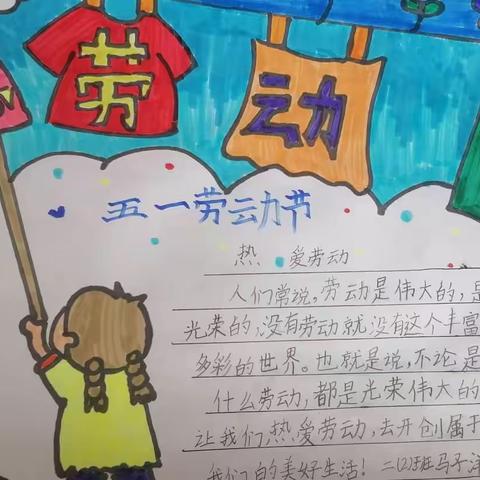 劳
动
五一劳动节
热 爱劳动
人们常说,劳动是伟大的,是
光荣的,没有劳动就没有这个丰富
多彩的世界。也就是说,不论是
什么劳动,都是光荣伟大的
让我们,热爱劳动,去开创属于
我们的美好生活!二(2)班马子